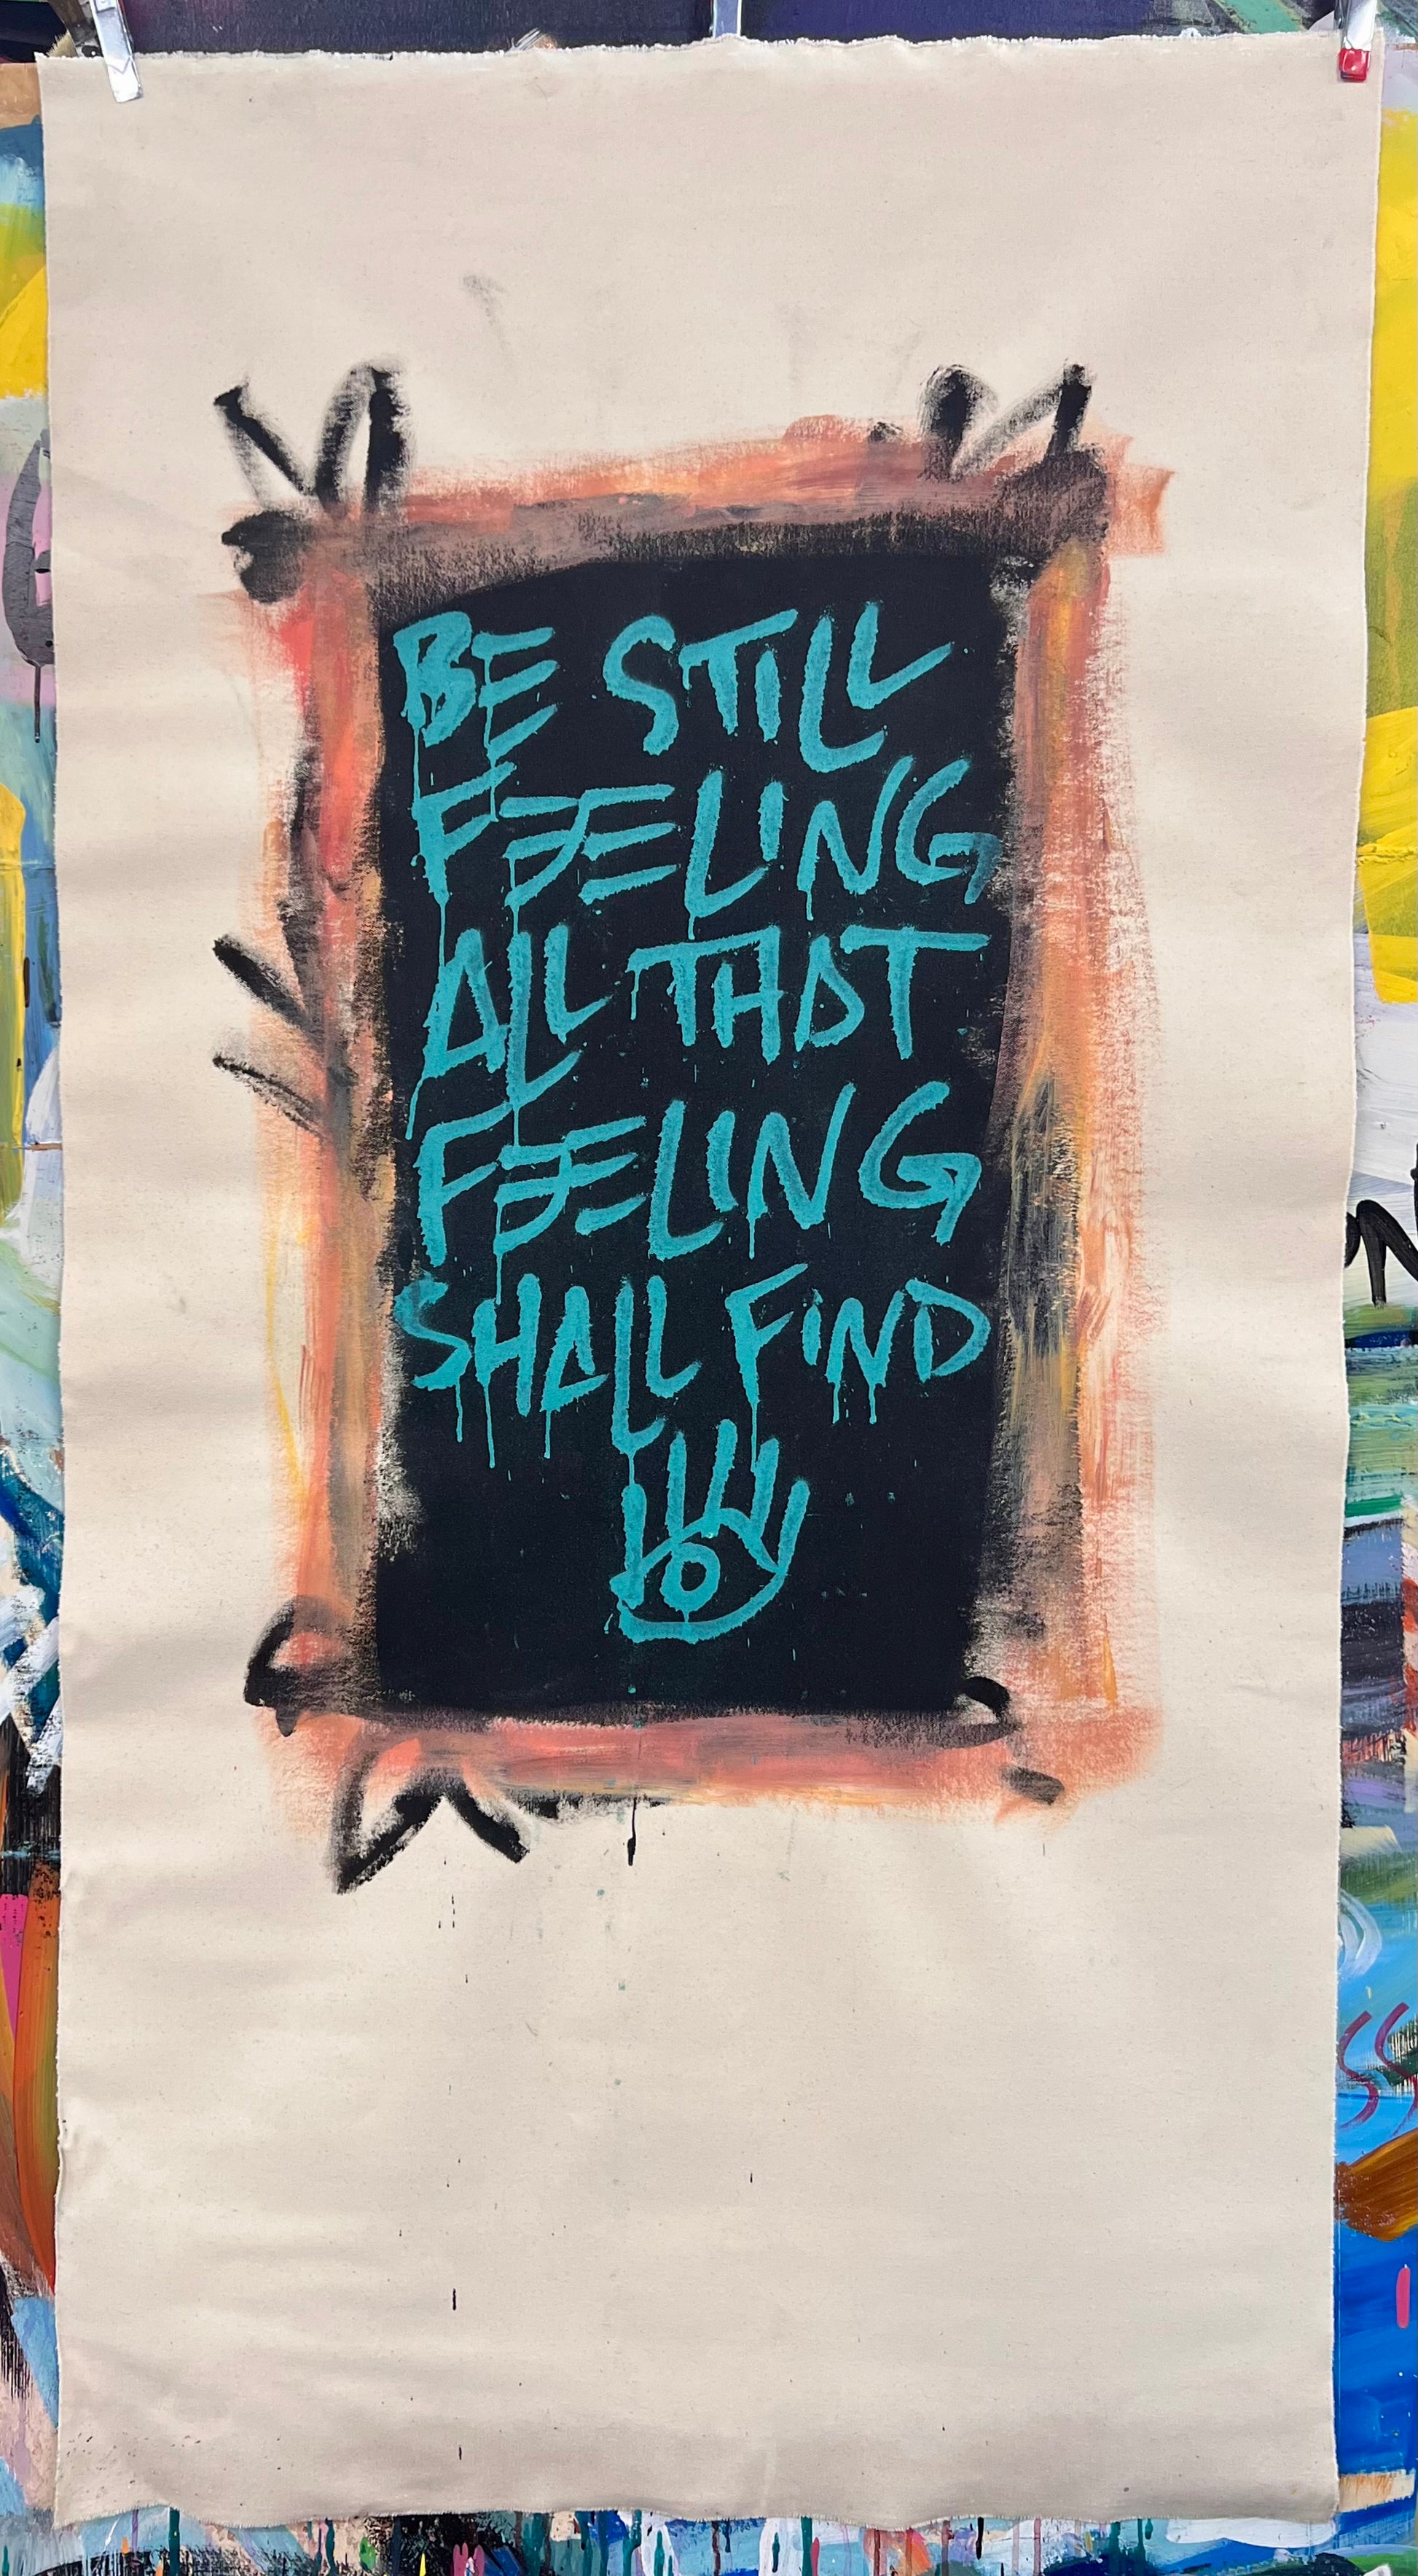 BE STILL
FEELING
ALL THAT
FEELING
SHALL FIND